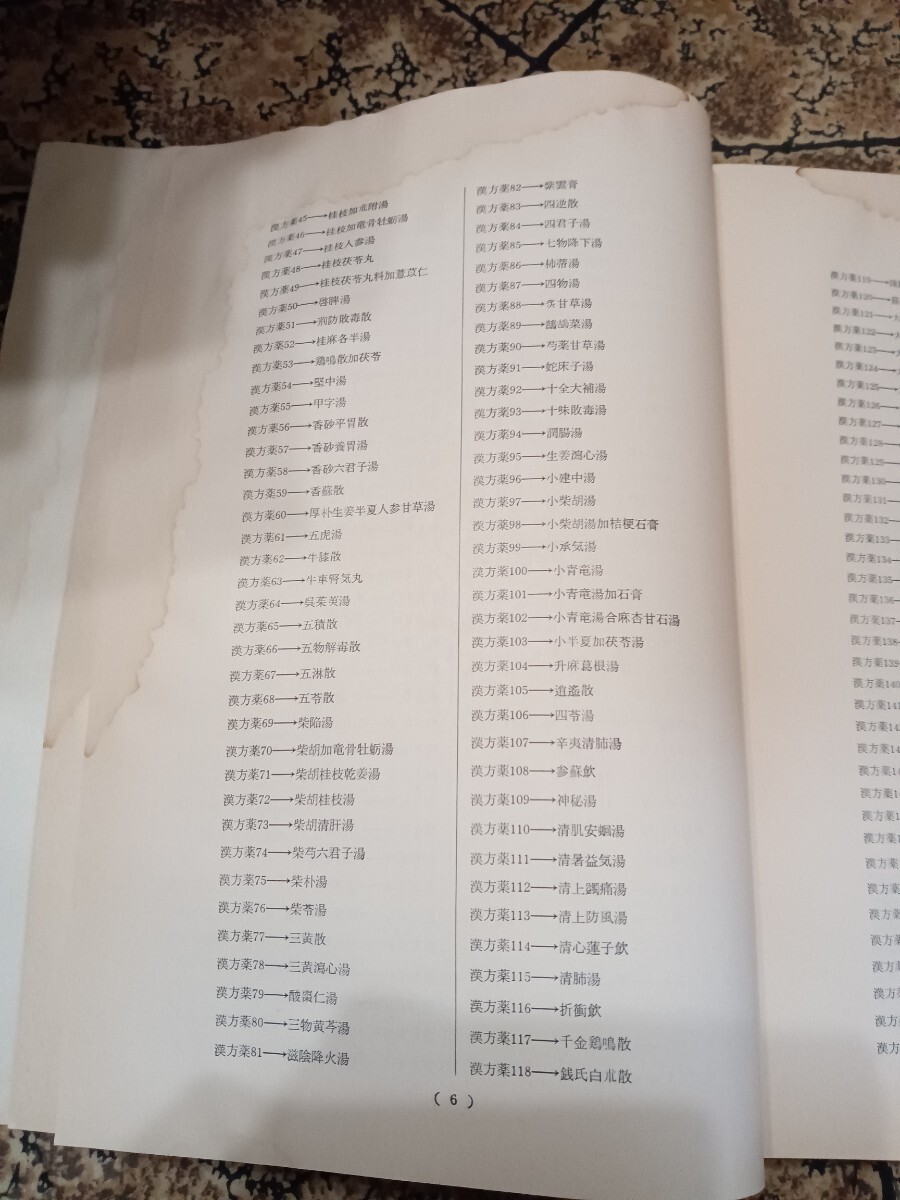 漢方薬45→桂枝加朮附湯
漢方薬46→桂枝加竜骨牡蛎湯
漢方薬47→桂枝人参湯
漢方薬48→桂枝茯苓丸
漢方薬49→桂枝茯苓丸料加薏苡仁
漢方薬50→啓脾湯
漢方薬51→荊防敗毒散
漢方薬52→桂麻各半湯
漢方薬53→鶏鳴散加茯苓
漢方薬54→堅中湯
漢方薬55→甲字湯
漢方薬56→香砂平胃散
漢方薬57→香砂養胃湯
漢方薬58→香砂六君子湯
漢方薬59→香蘇散
漢方薬60→厚朴生姜半夏人参甘草湯
漢方薬61→五虎湯
漢方薬62→牛膝散
漢方薬63→牛車腎気丸
漢方薬64→呉茱萸湯
漢方薬65→五積散
漢方薬66→五物解毒散
漢方薬67→五淋散
漢方薬68→五苓散
漢方薬69→柴陥湯
漢方薬70→柴胡加竜骨牡蛎湯
漢方薬71→柴胡桂枝乾姜湯
漢方薬72→柴胡桂枝湯
漢方薬73→柴胡清肝湯
漢方薬74→柴芍六君子湯
漢方薬75→柴朴湯
漢方薬76→柴苓湯
漢方薬77→三黄散
漢方薬78→三黄瀉心湯
漢方薬79→酸棗仁湯
漢方薬80→三物黄芩湯
漢方薬81→滋陰降火湯
漢方薬82→紫雲膏
漢方薬83→四逆散
漢方薬84→四君子湯
漢方薬85→七物降下湯
漢方薬86→柿蒂湯
漢方薬87→四物湯
漢方薬88→炙甘草湯
漢方薬89→鷓鴣菜湯
漢方薬90→芍薬甘草湯
漢方薬91→蛇床子湯
漢方薬92→十全大補湯
漢方薬93→十味敗毒湯
漢方薬94→潤腸湯
漢方薬95→生姜瀉心湯
漢方薬96→小建中湯
漢方薬97→小柴胡湯
漢方薬98→小柴胡湯加桔梗石膏
漢方薬99→小承気湯
漢方薬100→小青竜湯
漢方薬101→小青竜湯加石膏
漢方薬102→小青竜湯合麻杏甘石湯
漢方薬103→小半夏加茯苓湯
漢方薬104→升麻葛根湯
漢方薬105→逍遙散
漢方薬106→四苓湯
漢方薬107→辛夷清肺湯
漢方薬108→参蘇飲
漢方薬109→神秘湯
漢方薬110→清肌安蛔湯
漢方薬111→清暑益気湯
漢方薬112→清上蠲痛湯
漢方薬113→清上防風湯
漢方薬114→清心蓮子飲
漢方薬115→清肺湯
漢方薬116→折衝飲
漢方薬117→千金鶏鳴散
漢方薬118→銭氏白朮散
( 6 )
漢方薬119→
漢方薬120→
漢方薬121→
漢方薬122→
漢方薬123→
漢方薬124→
漢方薬125→
漢方薬126→
漢方薬127→
漢方薬128→
漢方薬129→
漢方薬130→
漢方薬131→
漢方薬132→
漢方薬133→
漢方薬134→
漢方薬135→
漢方薬136→
漢方薬137→
漢方薬138
漢方薬139
漢方薬140
漢方薬141
漢方薬14
漢方薬14
漢方薬14
漢方薬14
漢方薬1
漢方薬1
漢方薬
漢方薬
漢方薬
漢方薬
漢方薬
漢方薬
漢方
漢方